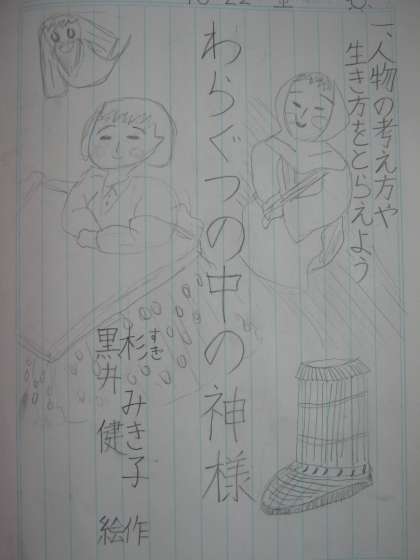 一、人物の考え方や
生き方をとらえよう
わらぐつの中の神様
杉みき子 作
すぎ
黒井 健 絵